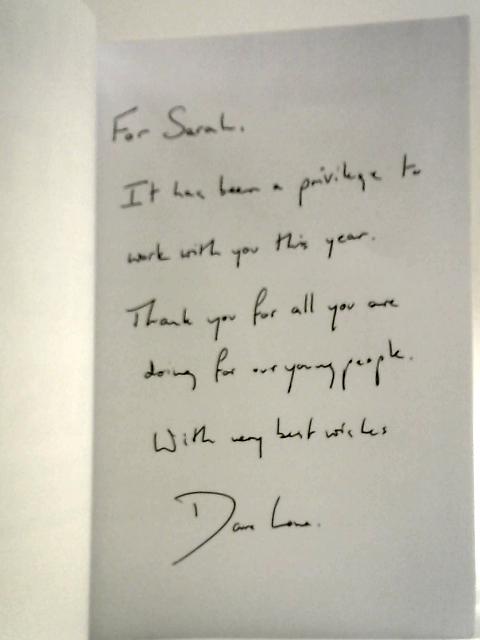 For Sarah.
It has been a privilege to
work with you this year.
Thank you for all you are
doing for our young people.
With very best wishes
Dave